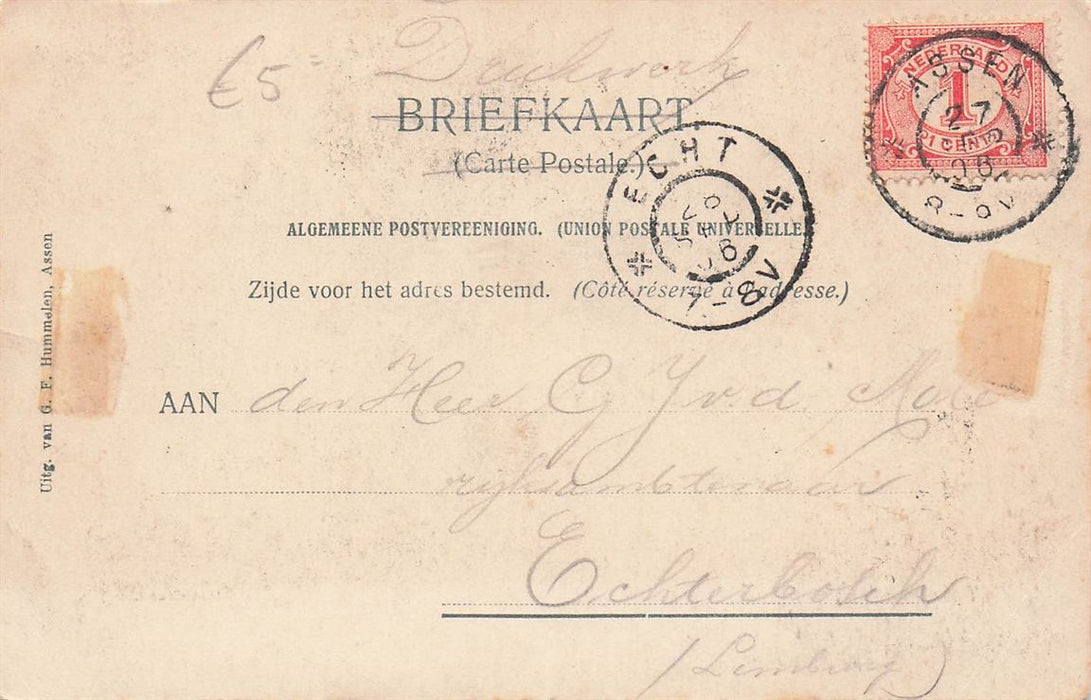 £5 Drukwerk
BRIEFKAART.
(Carte Postale.)
ALGEMEENE POSTVEREENIGING. (UNION POSTALE UNIVERSELLE.)
Zijde voor het adres bestemd. (Côté réservé à l'adresse.)
AAN den Heer C J v.d.
rijksambtenaar
Echterbosch
(Limburg)
Uitg. van G. F. Hummelen, Assen
NEDERLAND
1
CENT
ASSEN
27
06
8-9V
ECHT
06
7-8V